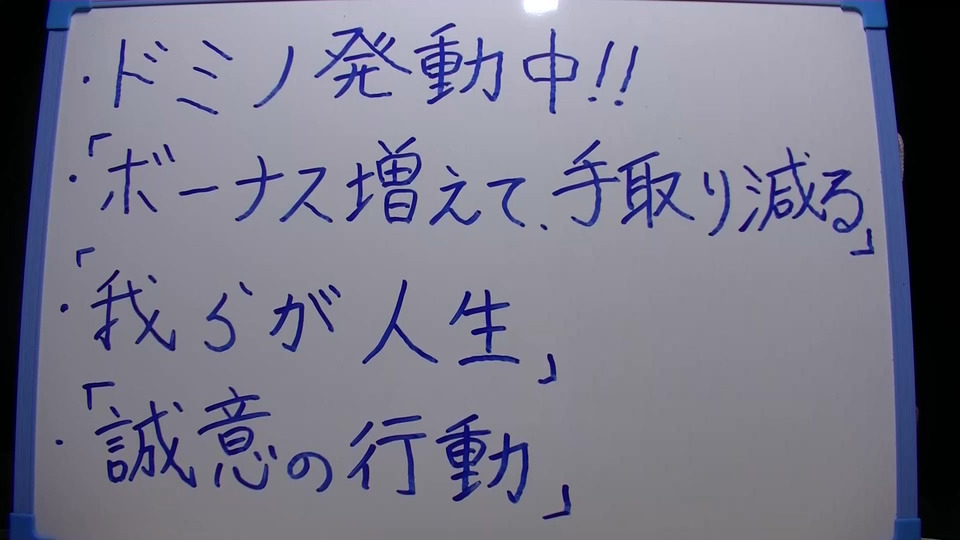 ・ドミノ発動中!!
・「ボーナス増えて、手取り減る」
・「我らが人生」
・「誠意の行動」